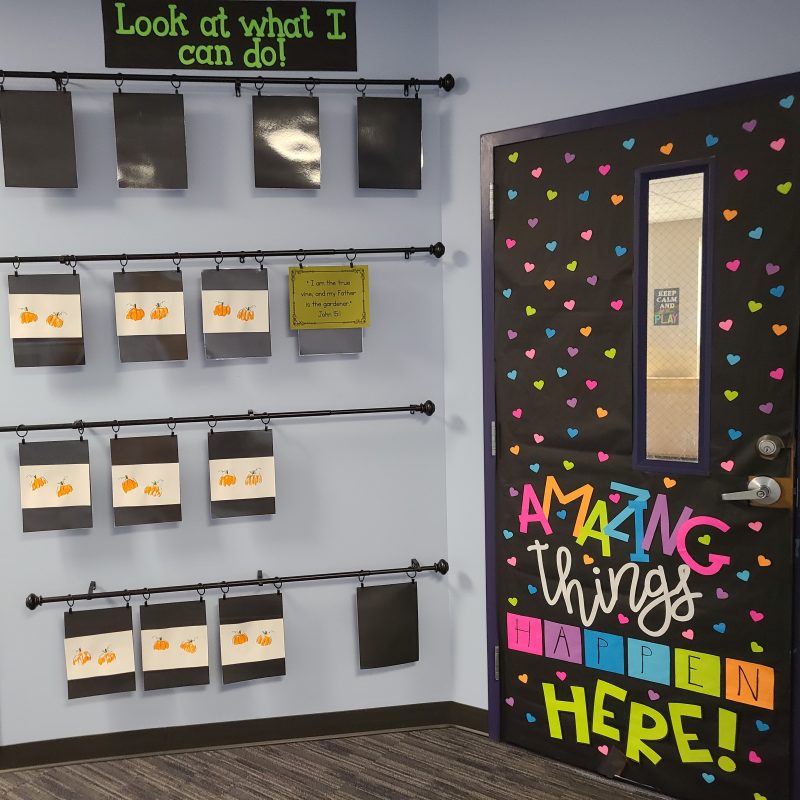 Look at what I
can do!
"I am the true
vine, and my Father
is the gardener."
John 15:1
KEEP
CALM
AND
PLAY
AMAZING
things
HAPPEN
HERE!